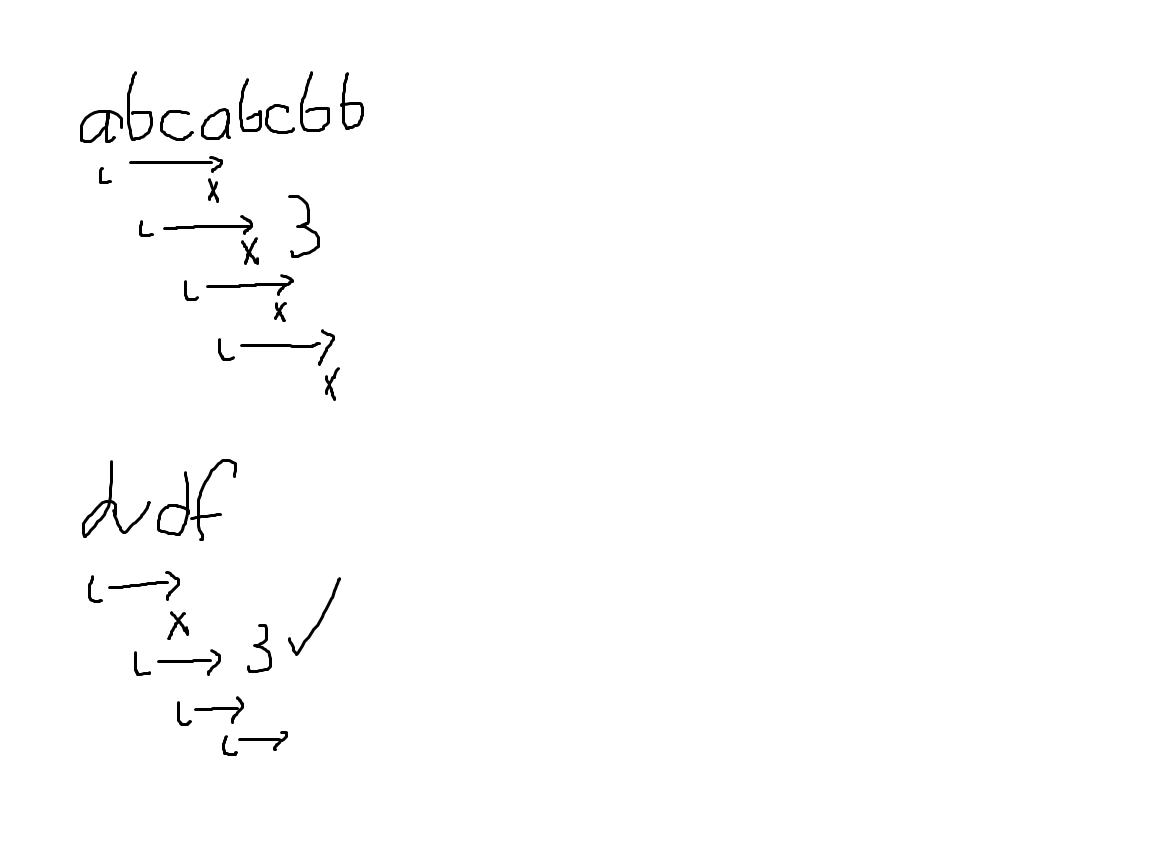 abcabcbb
L
X
L 3
X
L
X
L
X
dvdf
L
X
L 3
L
L